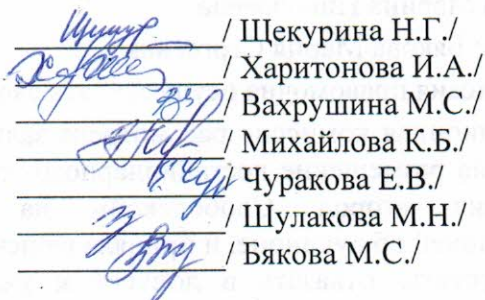 / Щекурина Н.Г./
/ Харитонова И.А./
/ Вахрушина М.С./
/ Михайлова К.Б./
/ Чуракова Е.В./
/ Шулакова М.Н./
/ Бякова М.С./